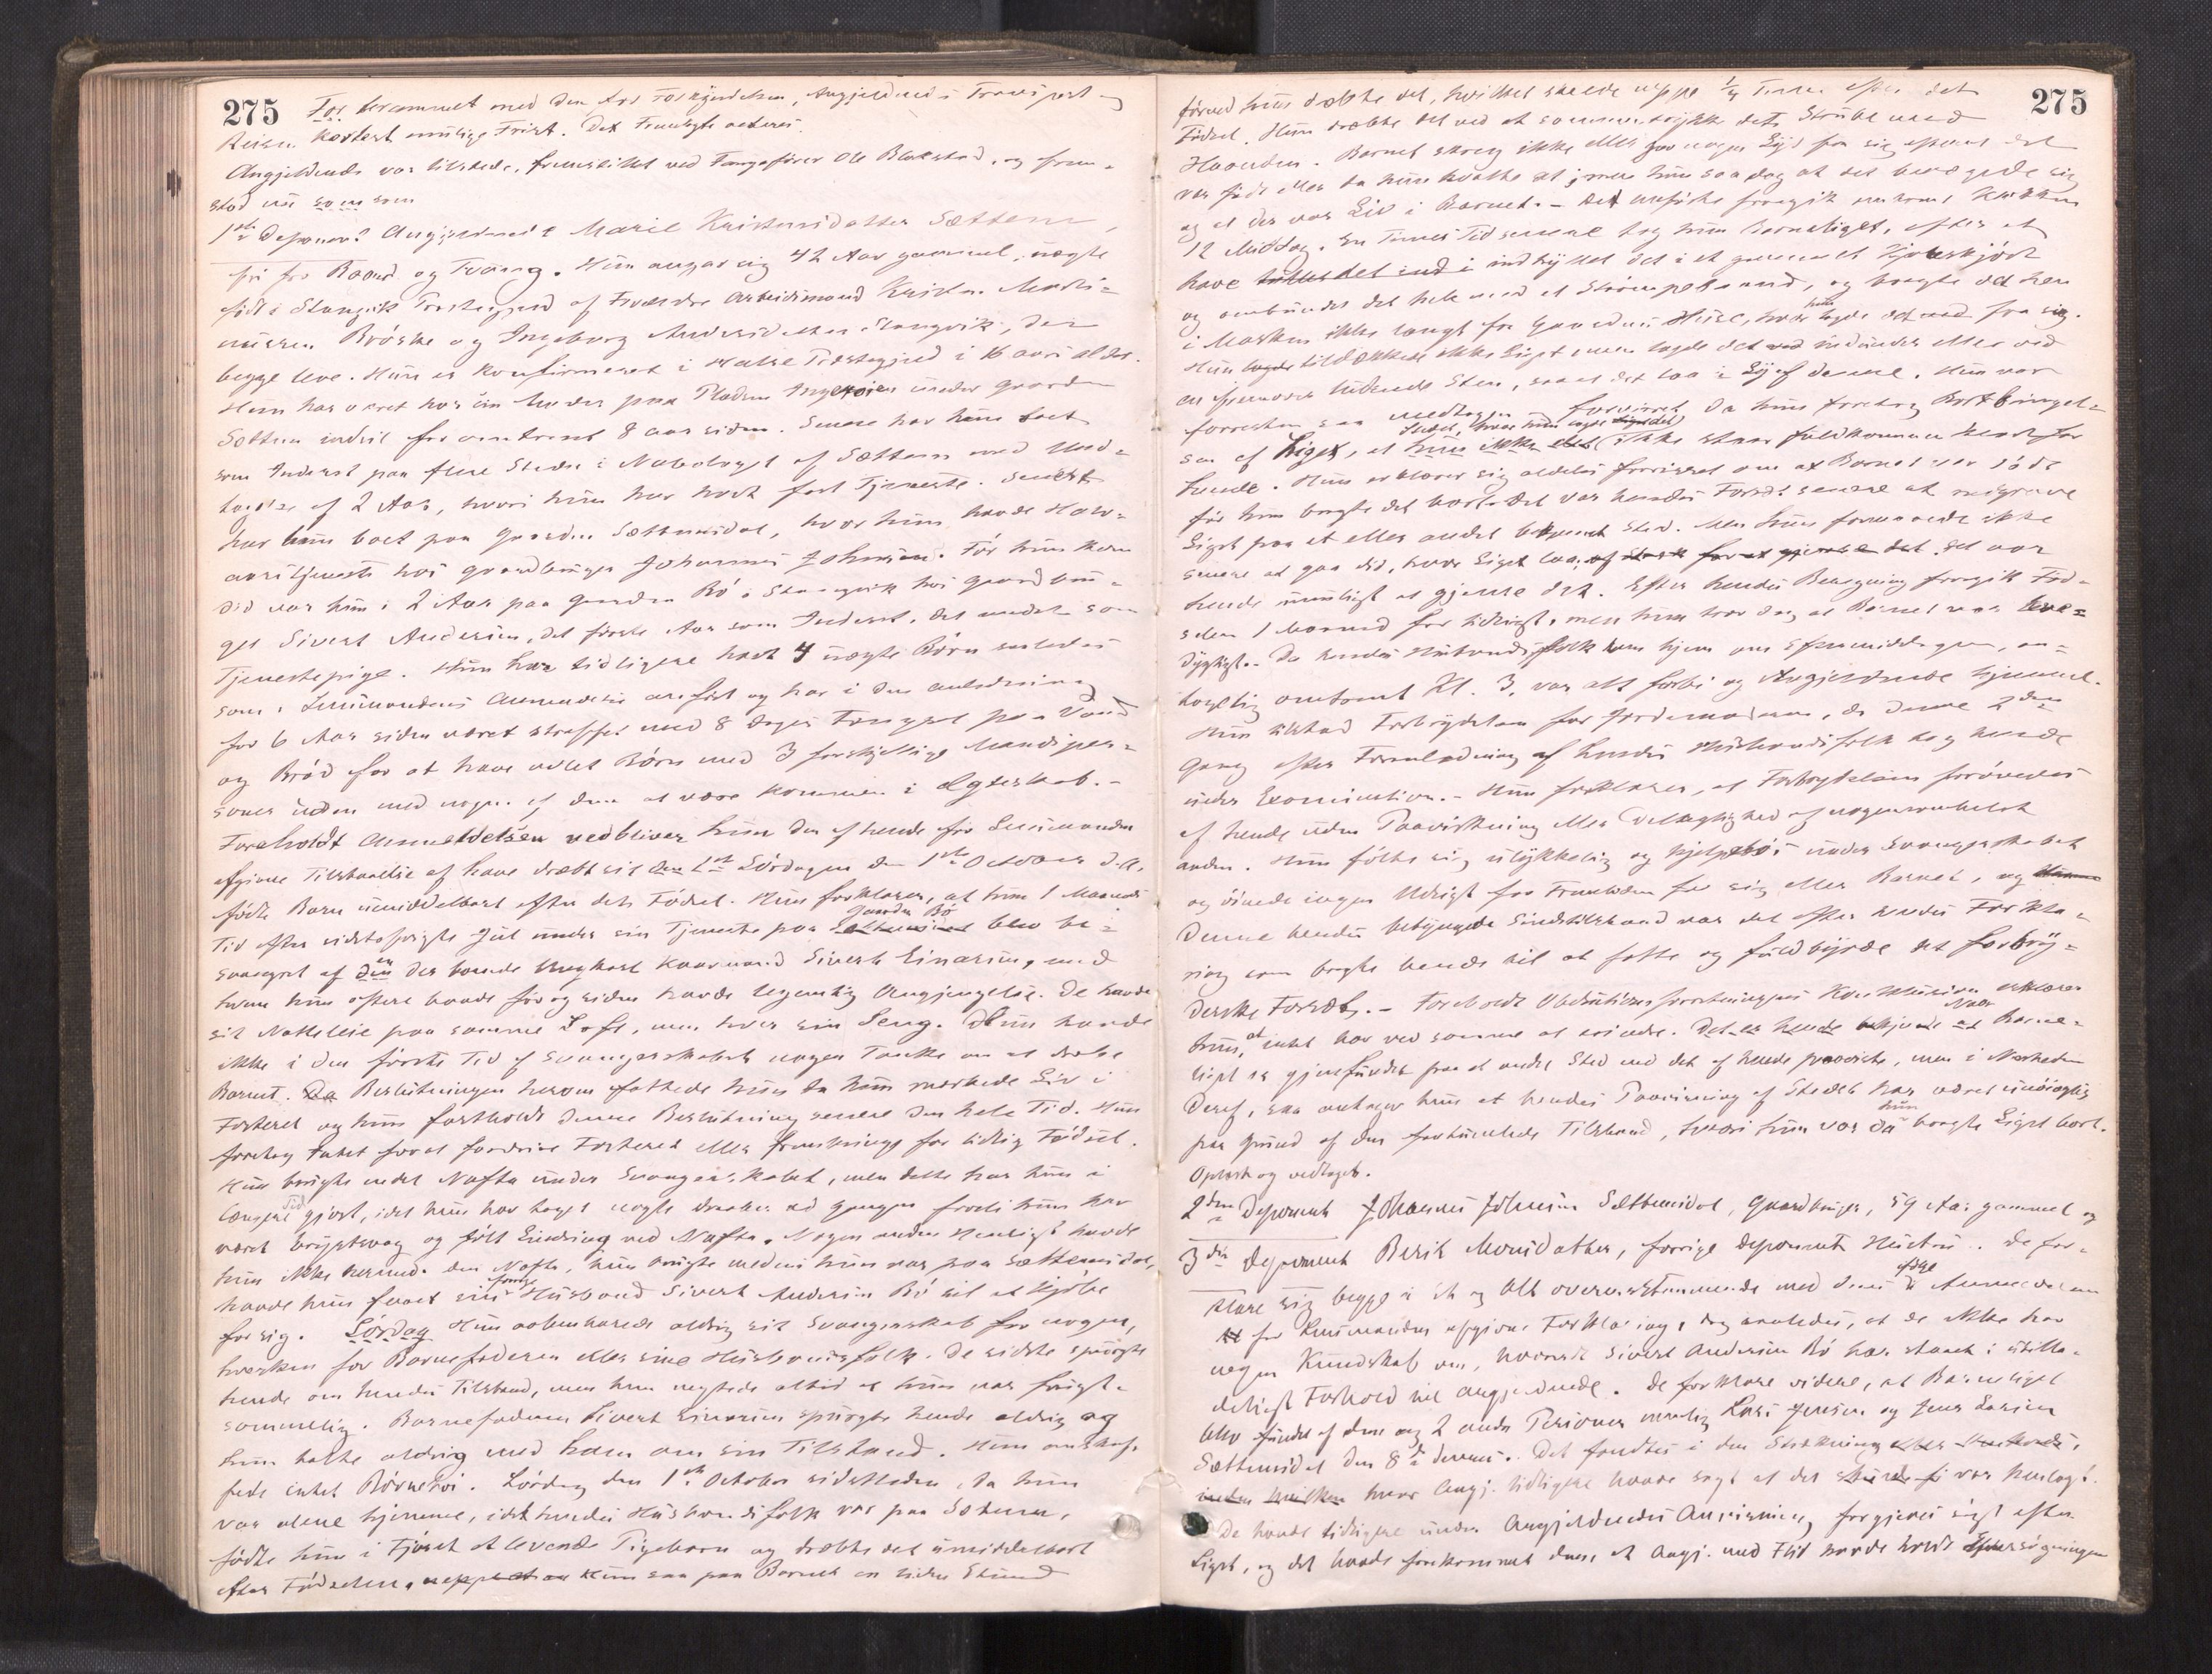 275
For krammet med den Angjeldendes Transport og
Reisen kortest mulige Frist. Det Fremlagte acteres.
Angjeldende var tilstede, fremstillet ved Fangefører Ole Blakstad, og frem-
stod nu som
1ste Deponent Angjeldende Marie Kristensdatter Sættem,
fri for Baand og Tvang. Hun angav sig 42 Aar gammel, uægte
født i Stangvik Præstegjeld af Forældre Arbeidsmand Kristen Morti-
nussen Brøske og Ingeborg Andersdatter Stangvik, der
begge leve. Hun er konfirmeret i Halse Præstegjeld i 16 aars alder.
Hun har været hos sin Moder paa Pladsen under Gaarden
Sættem indtil for omtrent 8 aar siden. Senere har hun boet
som Inderst paa flere Steder i Nabolaget af Sættem med Und-
tagelse af 2 Aar, hvori hun har havt fast Tjeneste. Senest
har hun boet paa Gaarden Sættemsdal, hvor hun havde Halv-
aarstjeneste hos Gaardbruger Johannes Johnsen. Før hun kom
did var hun i 2 Aar paa Gaarden Bø i Stangvik hos Gaardbru-
ger Sivert Andersen, det første Aar som Inderst, det andet som
Tjenestepige. Hun har tidligere havt 4 uægte Børn saaledes
som i Lensmandens Anmeldelse anført og har i den anledning
for 6 Aar siden været straffet med 8 dages Fængsel paa Vand
og Brød for at have avlet Børn med 3 forskjellige Mandsper-
soner uden med nogen af dem at være kommen i Ægteskab.-
Foreholdt Anmeldelsen vedbliver hun den af hende for Lensmanden
afgivne Tilstaaelse af have dræbt sit den 1ste Lørdagen den 1ste October d.A.
fødte Barn umiddelbart efter dets Fødsel. Hun forklarer, at hun 1 Maaneds
Tid efter sidstafvigte Jul under sin Tjeneste paa Gaarden Bø blev be-
svangret af den der boende Ungkarl Kaarmand Sivert Einarsen, med
hvem hun oftere baade før og siden havde legemlig Omgjængelse. De havde
sit Natteleie paa samme Loft, men hver sin Seng. Hun havde
ikke i den første Tid af Svangerskabet nogen Tanke om at dræbe
Barnet. Da Beslutningen herom fattede hun da hun mærkede Liv i
Fosteret og hun fastholdt denne Beslutning senere den hele Tid. Hun
foretog intet for at fordrive Fosteret eller fremskynde for tidlig Fødsel.
Hun brugte endel Nafta under Svangerskabet, men dette har hun i
længere Tid gjort, idet hun har taget nogle draaber ad gangen fordi hun har
været brystsvag og følt Lindring ved Nafta. Nogen anden Hensigt havde
hun ikke hermed. den Nafta, hun brugte medens hun var paa Sættemsdal,
havde hun faaet sin forrige Husbond Sivert Andersen Bø til at kjøbe
for sig. Lørdag Hun aabenbarede aldrig sit Svangerskab for nogen,
hverken for Barnefaderen eller sine Husbondsfolk. De sidste spurgte
hende om hendes Tilstand, men hun negtede altid at hun var frugt-
sommelig. Barnefaderen Sivert Einarsen spurgte hende aldrig og
hun talte aldrig med ham om sin Tilstand. Hun anskaf-
fede intet Børnetøi. Lørdag den 1ste October sidstleden da hun
var alene hjemme, idet hendes Husbondsfolk var paa Sæteren,
fødte hun i Fjøset et levende Pigebarn og dræbte det umiddelbart
efter Fødselen. Hun saa paa Barnet en liden Stund
275
førend hun dræbte det, hvilket skeede neppe 1/4 Time efter dets
Fødsel. Hun dræbte det ved at sammentrykke dets Strube med
Haanden. Barnet skreg ikke eller gav nogen Lyd fra sig efterat det
var født eller da hun kvalte det; men hun saa dog at det bevægede sig
og at der var Liv i Barnet.- Det anførte foregik omkring Klokken
12 Middag. En Times Tid senere tog hun Barneliget, efter at
have indsvøbt det i et gammelt Kjoleskjørt
og ombundet det hele med et Strømpebaand, og bragte det hen
i Marken ikke langt fra Gaardens Huse, hvor hun lagde det fra sig.
Hun tildækkede ikke Liget men lagde det indunder eller ved
en ludende Sten, saa at det laa i Ly af denne. Hun var
forresten saa medtagen forvirret, da hun foretog Bortbringel-
sen af Liget, at Stedet, hvor hun lagde det, ikke staar fuldkommen klart for
hende. Hun erklærer sig aldeles forvisset om at Barnet var dødt
før hun bragte det bort. Det var hendes Forsæt senere at nedgrave
Liget paa et eller andet bekvemt Sted. Men hun formaaede ikke
senere at gaa did, hvor Liget laa; det var
hende umuligt at gjøre det. Efter hendes Beregning foregik Fød-
selen 1 Maaned for tidligt, men hun tror dog at Barnet var leve-
dygtigt.- Da hendes Husbondsfolk kom hjem om Eftermiddagen, an-
tagelig omtrent Kl. 3, var alt forbi og Angjeldende hjemme.
Hun tilstod Forbrydelsen for Jordemoderen, da denne 2den
Gang efter Foranledning af hendes Husbondsfolk tog hende
under Examination.- Hun forklarer, at Forbrydelsen forøvedes
af hende uden Paavirkning eller Delagtighed af nogensomhelst
anden. Hun følte sig ulykkelig og hjelpeløs under Svangerskabet
og øinede ingen Udsigt for Fremtiden for sig eller Barnet, og
denne hendes betyngede Sindstilstand var det efter hendes Forkla-
ring som bragte hende til at fatte og fuldbyrde det forbry-
derske Forsæt.- Foreholdt Obductionsforretningens Konklusion erklærer
hun, at intet har ved samme at erindre. Naar Barne-
liget er gjenfundet paa et andet Sted end det af hende paaviste, men i Nærheden
deraf, saa antager hun at hendes Paavisning af Stedet har været unøiagtig
paa Grund af den fortumlede Tilstand, hvori hun var da hun bragte Liget bort.
Oplæst og vedtaget.
2den Deponent Johannes Johnsen Sættemsdal, Gaardbruger, 59 Aar gammel og
3die Deponent Berit Monsdatter, forrige Deponents Hustru. De for-
klare sig begge i Et og Alt overensstemmende med deres ifølge Anmeldelsen
for Lensmanden afgivne Forklaring, dog saaledes, at de ikke har
nogen Kundskab om, hvorvidt Sivert Andersen Bø har staaet i utilla-
deligt Forhold til angjeldende. De forklare videre, at Barneliget
blev fundet af dem og 2 andre Personer nemlig Lars Jensen og Jens Larsen
Sættemsdal den 8de dennes. Det fandtes i den Strækning
hvor Angj. tidligere havde sagt at det var henlagt.
De havde tidligere under Angjeldendes Anvisning forgjæves søgt efter
Liget, og det havde forekommet dem, at Angj. med Flid havde holdt Eftersøgningen